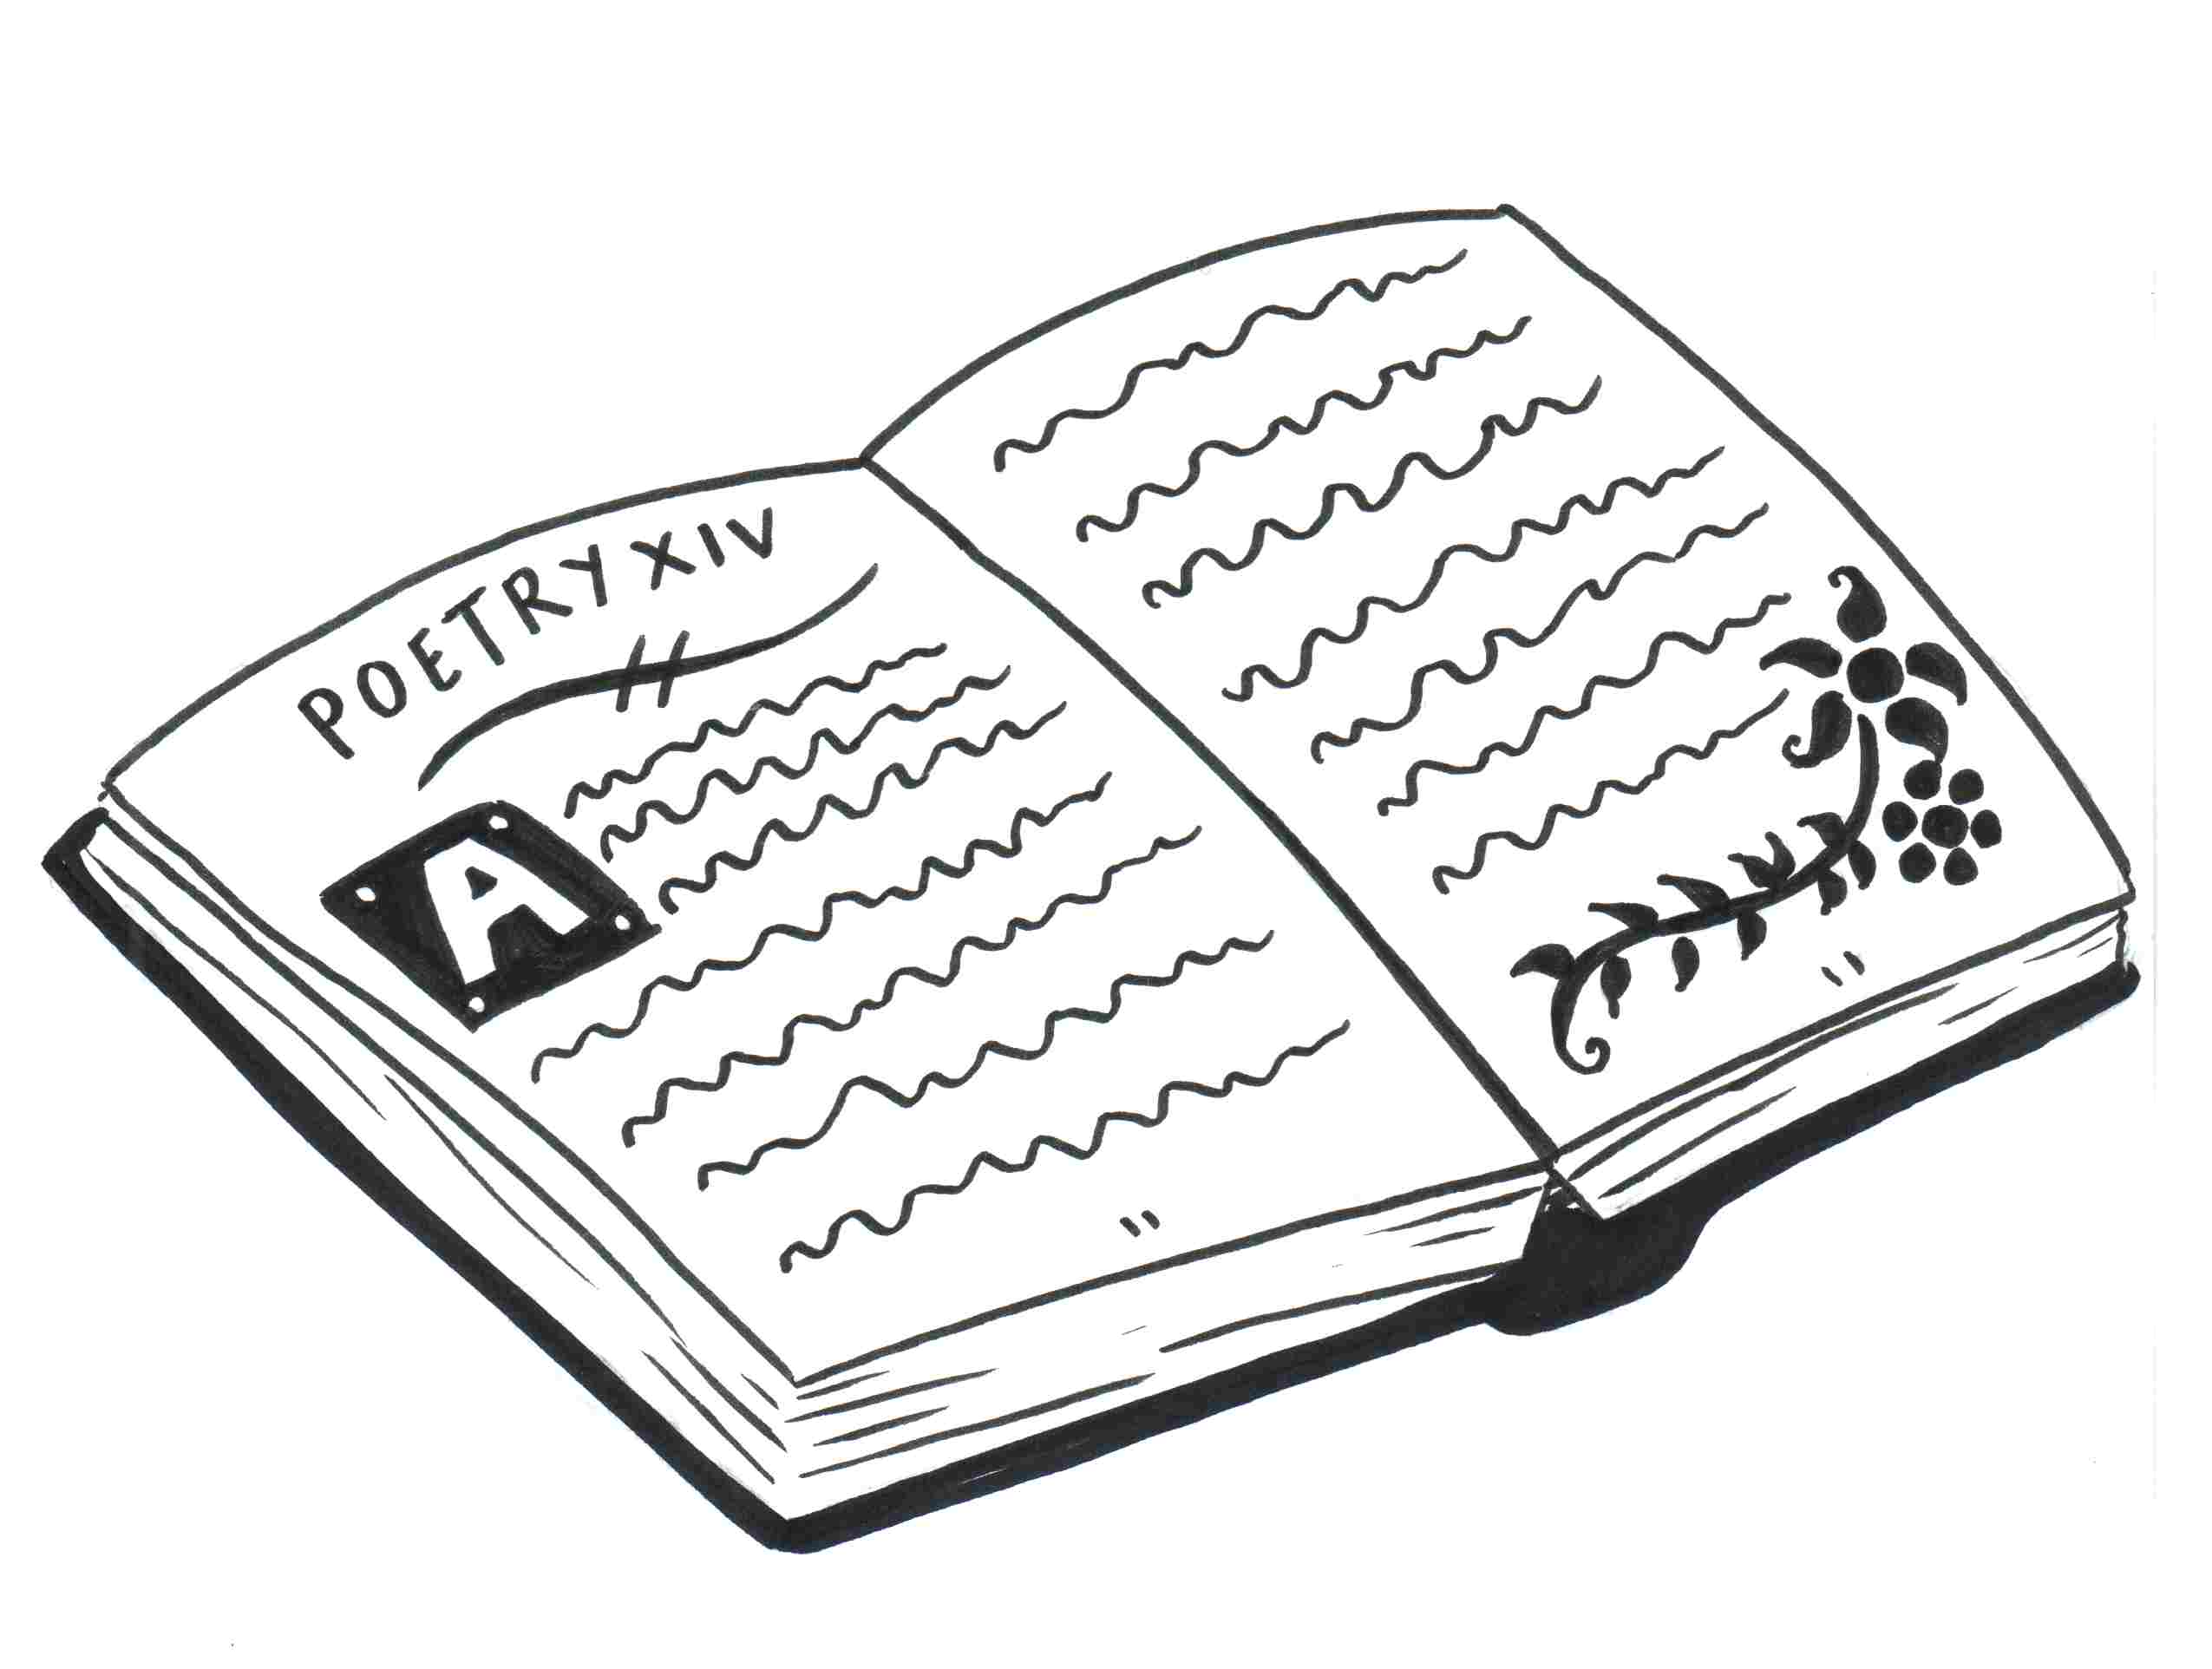 POETRY XIV
A